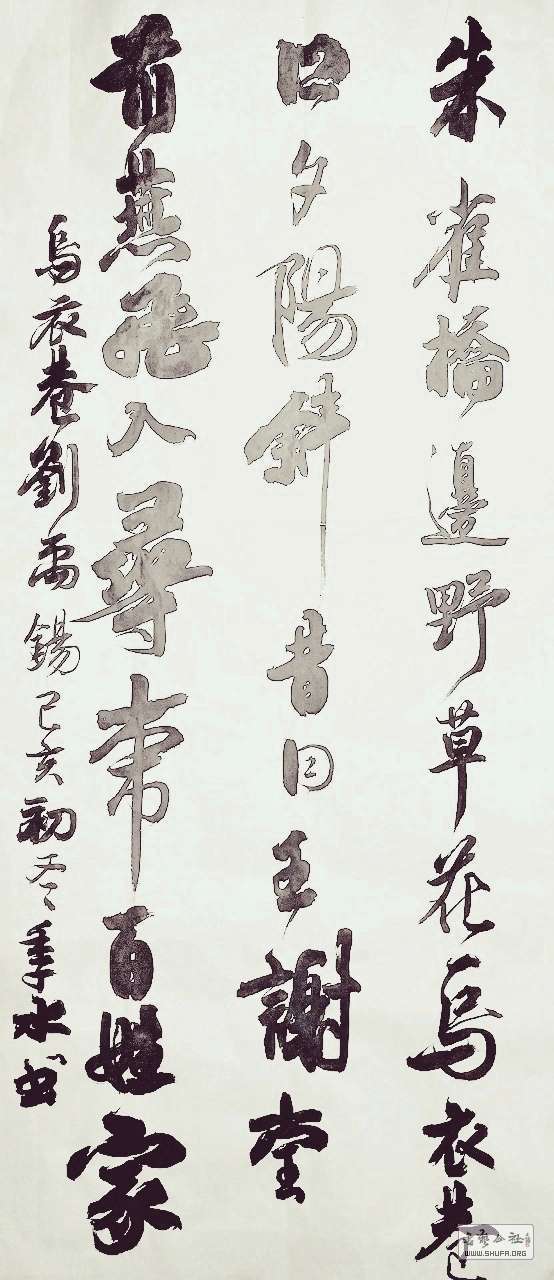 朱雀橋邊野草花烏衣巷
口夕陽斜昔日王謝堂
前燕飛入尋常百姓家
烏衣巷劉禹錫己亥初冬季水书
WWW.SHUFA.ORG